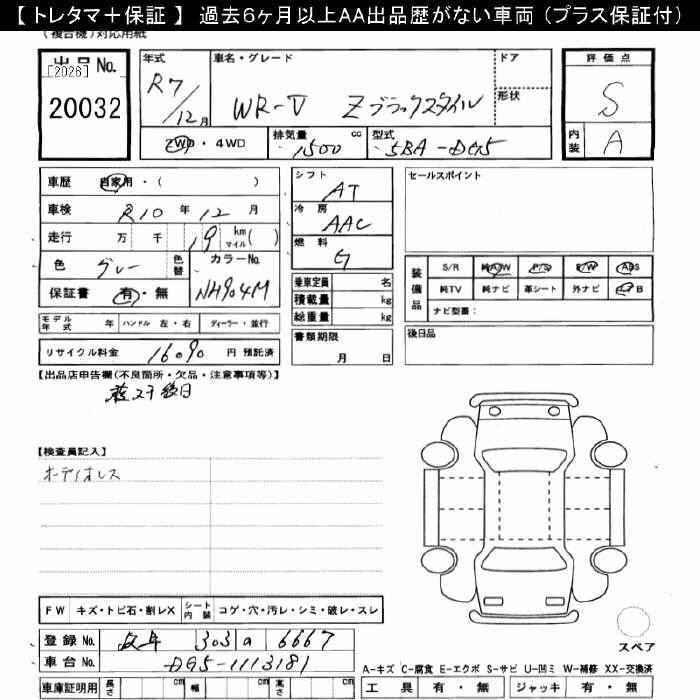 【 トレタマ＋保証 】 過去６ヶ月以上ＡＡ出品歴がない車両（プラス保証付）
(複合機)対応用紙
出品No.
[2026]
20032
年式
R7/12月
車名・グレード
WR-V Zブラックスタイル
ドア
形状
2WD・4WD
排気量
1500 cc
型式
5BA-DG5
評価点
S
内装
A
車歴 自家用・( )
車検 R10年12月
走行 万 千 19 km マイル( )
色 グレー 色替
カラーNo.
NH904M
保証書 有・無
シフト
AT
冷房
AAC
燃料
G
乗車定員 名
積載量 kg
総重量 kg
セールスポイント
装備品
S/R 純A/W P/S P/W ABS
純TV 純ナビ 革シート 外ナビ エアB
ナビ型番：
モデル年式 年 ハンドル 左・右 ディーラー・並行
リサイクル料金 16090 円 預託済
書類期限
月 日
後日品
【出品店申告欄(不良箇所・欠品・注意事項等)】
【検査員記入】
オーディオレス
FW キズ・トビ石・割レX シート内装 コゲ・穴・汚レ・シミ・破レ・スレ
登録No. 岐阜 303 a 6667
車台No. DG5-1113181
車庫証明用 長さ cm 幅 cm 高さ cm
スペア
A-キズ C-腐食 E-エクボ S-サビ U-凹ミ W-補修 XX-交換済
工具 有・無 ジャッキ 有・無